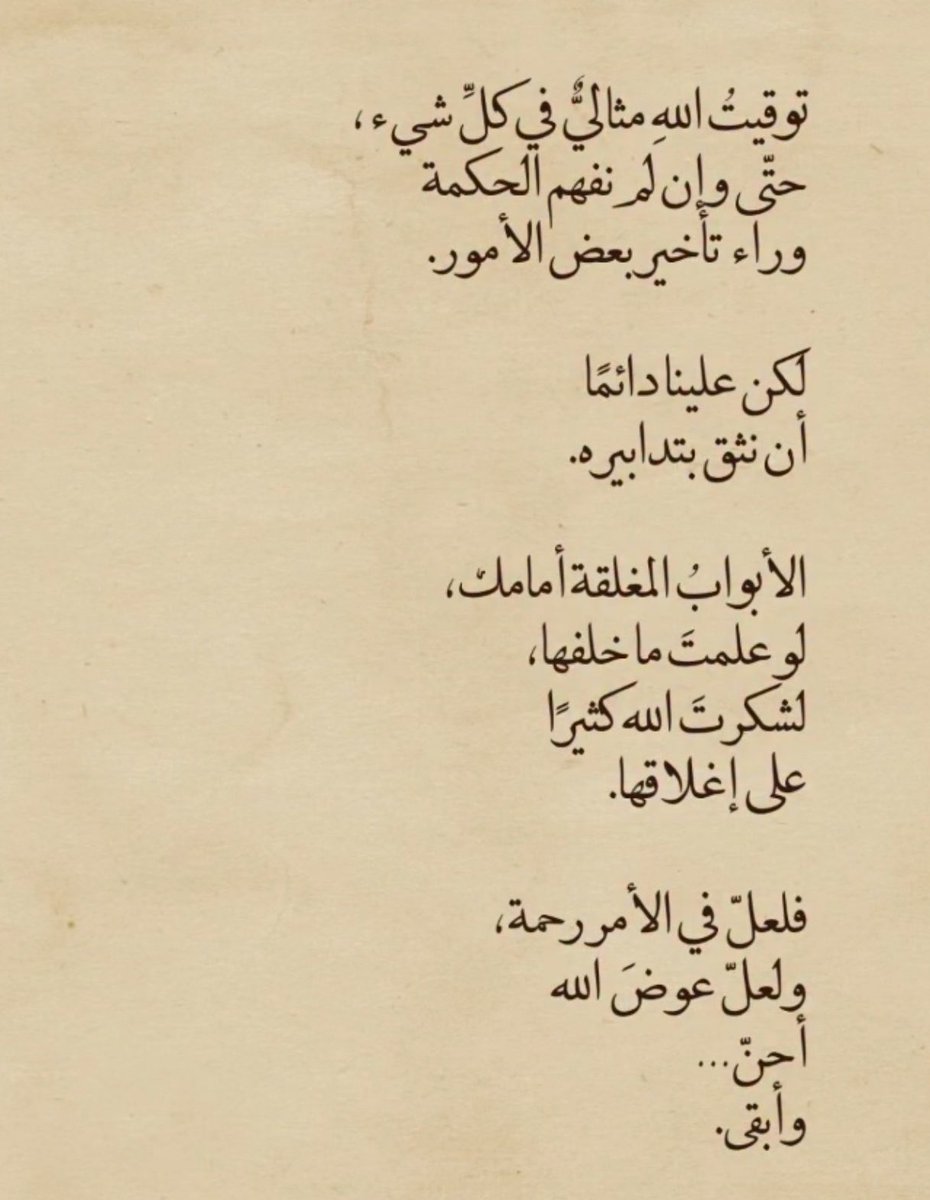 توقيتُ اللهِ مثاليٌّ في كلِّ شيء،
حتّى وإن لم نفهم الحكمة
وراء تأخير بعض الأمور.
لكن علينا دائمًا
أن نثق بتدابيره.
الأبوابُ المغلقة أمامك،
لو علمتَ ما خلفها،
لشكرتَ الله كثيرًا
على إغلاقها.
فلعلّ في الأمر رحمة،
ولعلّ عوضَ الله
أحنّ...
وأبقى.